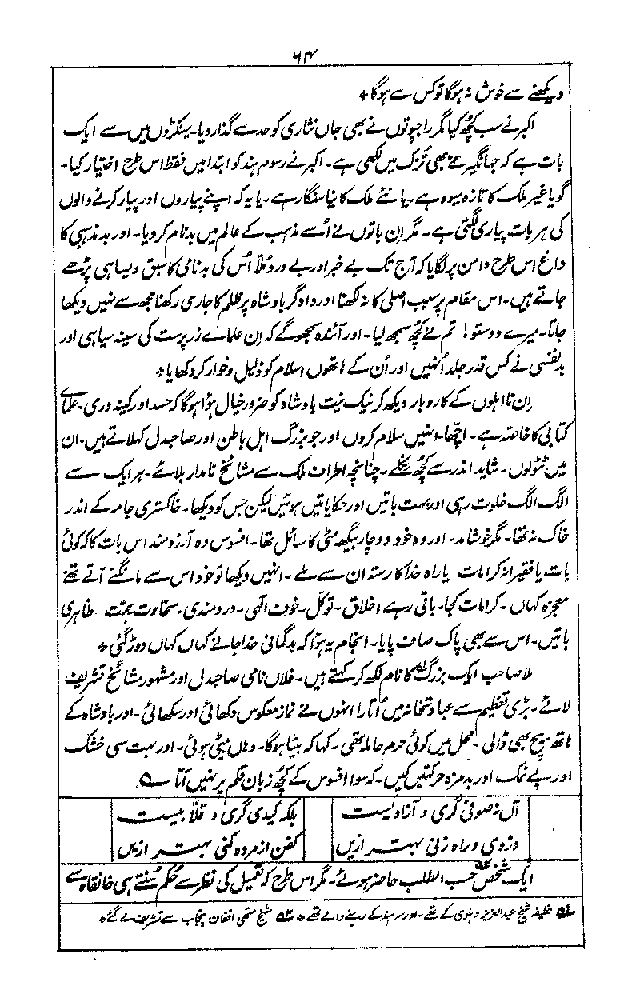 ۶۴
دیکھنے سے خوش نہ ہوگا تو کس سے ہوگا *
اکبر نے سب کچھ کیا مگر راجپوتوں نے بھی جاں نثاری کو حد سے گذار دیا۔ سینکڑوں میں سے ایک
بات ہے کہ جہانگیر نے بھی تزک میں لکھی ہے۔ اکبر نے رسوم ہند کو ابتدا میں فقط اس طرح اختیار کیا۔
گویا غیر ملک کا تازہ میوہ ہے۔ یا نئے ملک کا نیا سنگار ہے۔ یا یہ کہ اپنے پیاروں اور پیار کرنے والوں
کی ہر بات پیاری لگتی ہے۔ مگر ان باتوں نے اُسے مذہب کے عالم میں بدنام کر دیا۔ اور بد مذہبی کا
داغ اس طرح دامن پر لگایا کہ آج تک بے خبر اور بے درد ملّا اُس کی بدنامی کا سبق ویسا ہی پڑھے
جاتے ہیں۔ اس مقام پر سبب اصلی کا نہ لکھنا اور دادگر بادشاہ پر ظلم کا جاری رکھنا مجھ سے نہیں دیکھا
جاتا۔ میرے دوستو! تم نے کچھ سمجھ لیا۔ اور آئندہ سمجھوگے کہ اِن علماے زر پرست کی سینہ سیاہی اور
بدنفسی نے کس قدر جلد اُنہیں اور اُن کے ہاتھوں اسلام کو ذلیل و خوار کر دکھایا *
اِن نااہلوں کے کاروبار دیکھ کر نیک نیت بادشاہ کو ضرور خیال ہؤا ہوگا کہ حسد اور کینہ وری۔ علمائے
کتابی کا خاصہ ہے۔ اچھا۔ انہیں سلام کروں اور جو بزرگ اہل باطن اور صاحبدل کہلاتے ہیں۔ ان
میں ٹٹولوں۔ شاید اندر سے کچھ نکلے۔ چنانچہ اطراف ملک سے مشائخ نامدار بلائے۔ ہر ایک سے
الگ الگ خلوت رہی اور بہت باتیں اور حکایاتیں ہوئیں لیکن جس کو دیکھا۔ خاکستری جامہ کے اندر
خاک نہ تھا۔ مگر خوشامد۔ اور وہ خود دو چار بیگھہ مٹی کا سائل تھا۔ افسوس وہ آرزومند اس بات کا کہ کوئی
بات یا فقیرانہ کرامات یا راہ خدا کا رستہ ان سے ملے۔ انہیں دیکھا تو خود اس سے مانگنے آتے تھے
معجزہ کہاں۔ کرامات کجا۔ باقی رہے اخلاق۔ توکل۔ خوف الٰہی۔ دردمندی۔ سخاوت۔ ہمت۔ ظاہری
باتیں۔ اس سے بھی پاک صاف پایا۔ انجام یہ ہؤا کہ بدگمانی خدا جانے کہاں کہاں دوڑ گئی *
ملا صاحب ایک بزرگ کا نام لکھ کر کہتے ہیں۔ فلاں نامی صاحبدل اور مشہور مشائخ تشریف
لائے۔ بڑی تعظیم سے عبادتخانہ میں اُتارا اُنہوں نے نماز معکوس دکھائی اور سکھائی۔ اور بادشاہ کے
ہاتھ بیچ بھی ڈالی۔ محل میں کوئی حرم حاملہ تھی۔ کہا کہ بیٹا ہوگا۔ وہاں بیٹی ہوئی۔ اور بہت سی خنک
اور بے نمک اور بدمزہ حرکتیں کیں۔ کہ سوا افسوس کے کچھ زبان قلم پر نہیں آتا ہے
آں نہ صوفی گری و آزادیست بلکہ کیدی گری و قلابیست
دزدی و راہ زنی بہتر ازیں کفن از مردہ کنی بہتر ازیں
ایک شخص حسب الطلب حاضر ہوئے۔ مگر اس طرح کہ تعمیل کی نظر سے حکم سنتے ہی خانقاہ سے
خلیفہ شیخ عبدالعزیز دہلوی کے تھے۔ اور سرہند کے رہنے والے تھے * شیخ متھی افغان پنجاب سے تشریف لے گئے *